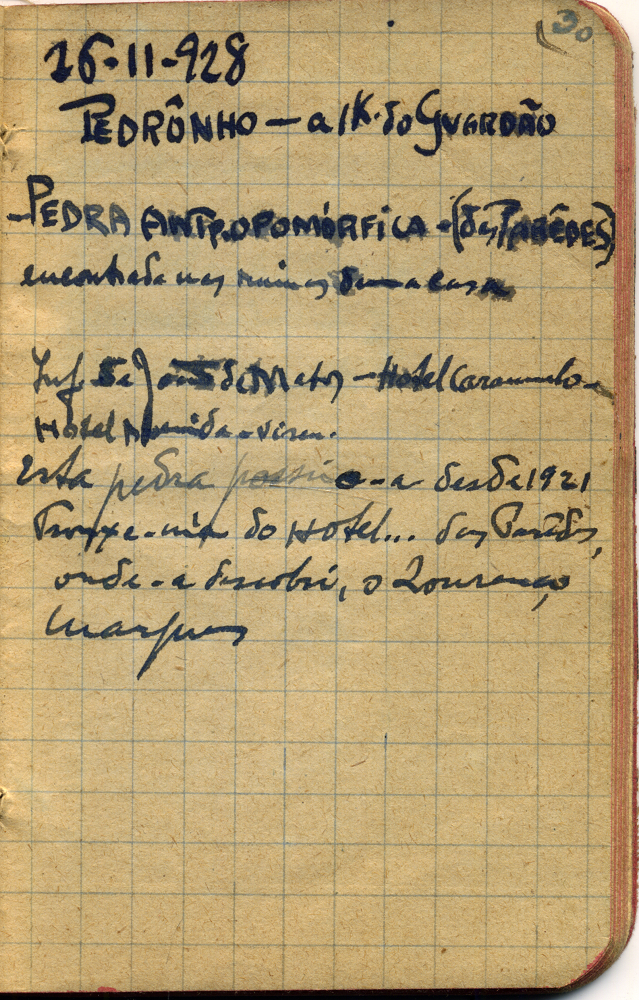 30
26-11-928
PEDRÔNHO - a 1K. do GUARDÃO
- PEDRA ANTROPOMÓRFICA - (das PARÊDES)
encontrada nas ruinas duma casa
Inf. de João de Matos - Hotel Caramulo -
Hotel Avenida - Viseu.
Esta pedra possuo-a desde 1921
Trouxe-ma do Hotel... das Parêdes,
onde-a descobri, o Lourenço
Marques